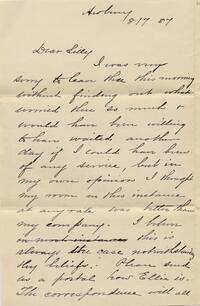 Asbury
8/7 87
Dear Lilly
I was very
sorry to learn this this morning
without finding out what
worried thee so much &
would have been willing
to have waited another
day if I could have been
of any service, but in
my own opinion I thought
my room in this instance
at any rate was better than
my company. I
this is
always the case notwithstanding
thy beliefs. Please send
us a postal how Ellie is.
The correspondence will all